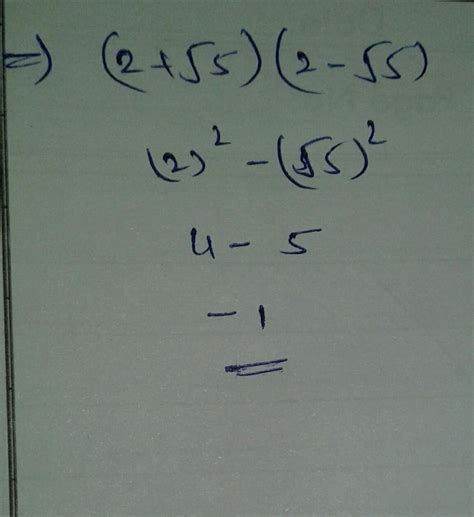 ⇒) (2+√5)(2-√5)
(2)² - (√5)²
4 - 5
- 1